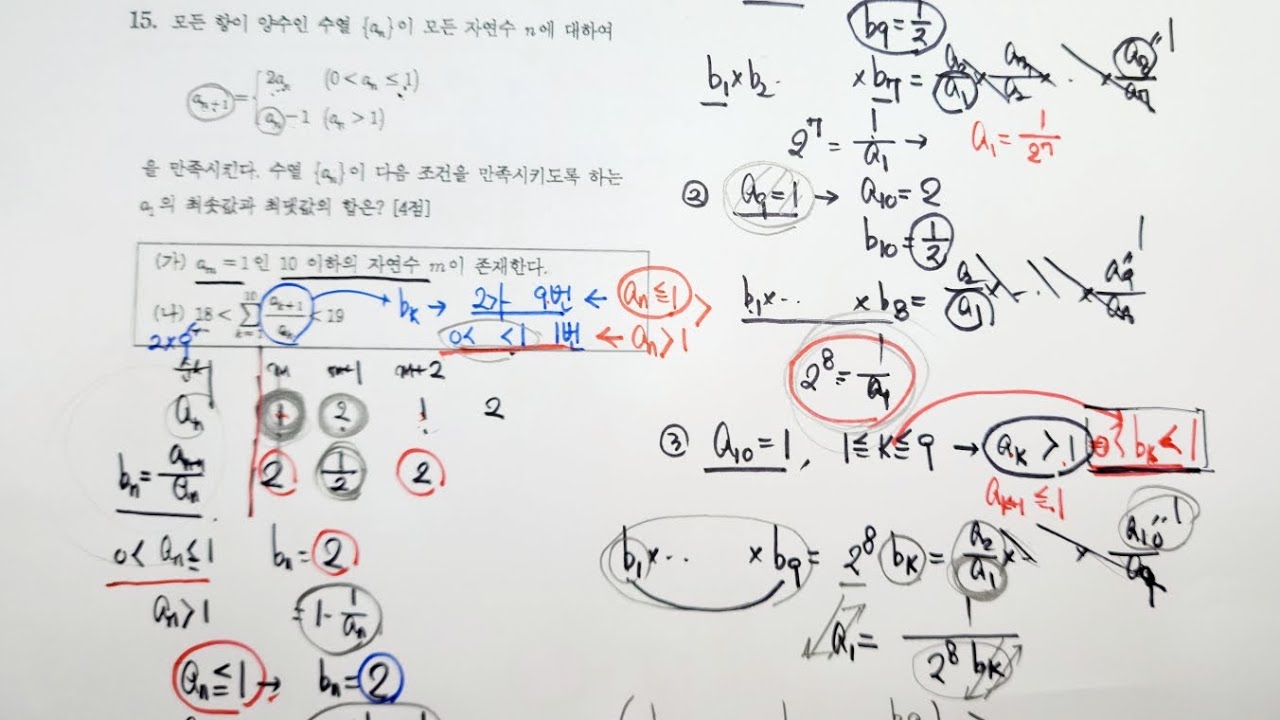 15. 모든 항이 양수인 수열 {aₙ}이 모든 자연수 n에 대하여
aₙ₊₁ = { 2aₙ (0 < aₙ ≤ 1)
aₙ-1 (aₙ > 1)
을 만족시킨다. 수열 {aₙ}이 다음 조건을 만족시키도록 하는
a₁의 최솟값과 최댓값의 합은? [4점]
(가) aₘ = 1인 10 이하의 자연수 m이 존재한다.
(나) 18 < ∑ₖ₌₁¹⁰ aₖ₊₁/aₖ < 19
bₖ → 2가 9번 ← aₙ ≤ 1
0< <1 1번 ← aₙ > 1
2×9
m m+1 m+2
aₙ 1 2 1 2
bₙ = aₙ₊₁/aₙ 2 1/2 2
0 < aₙ ≤ 1 bₙ = 2
aₙ > 1 = 1 - 1/aₙ
aₙ ≤ 1 → bₙ = 2
b₉ = 1/2
b₁×b₂· ×b₇ = a₂/a₁ × a₃/a₂ × · × a₈/a₇ "1
2⁷ = 1/a₁ → a₁ = 1/2⁷
② a₉=1 → a₁₀=2
b₁₀ = 1/2
b₁×·· ×b₈ = a₂/a₁ × · · × a₉/a₈ "1
2⁸ = 1/a₁
③ a₁₀=1, 1≤k≤9 → aₖ > 1 bₖ < 1
aₖ₊₁ ≤ 1
b₁×·· ×b₉ = 2⁸ bₖ = a₂/a₁ × × a₁₀/a₉ "1
a₁ = 1/(2⁸ bₖ)